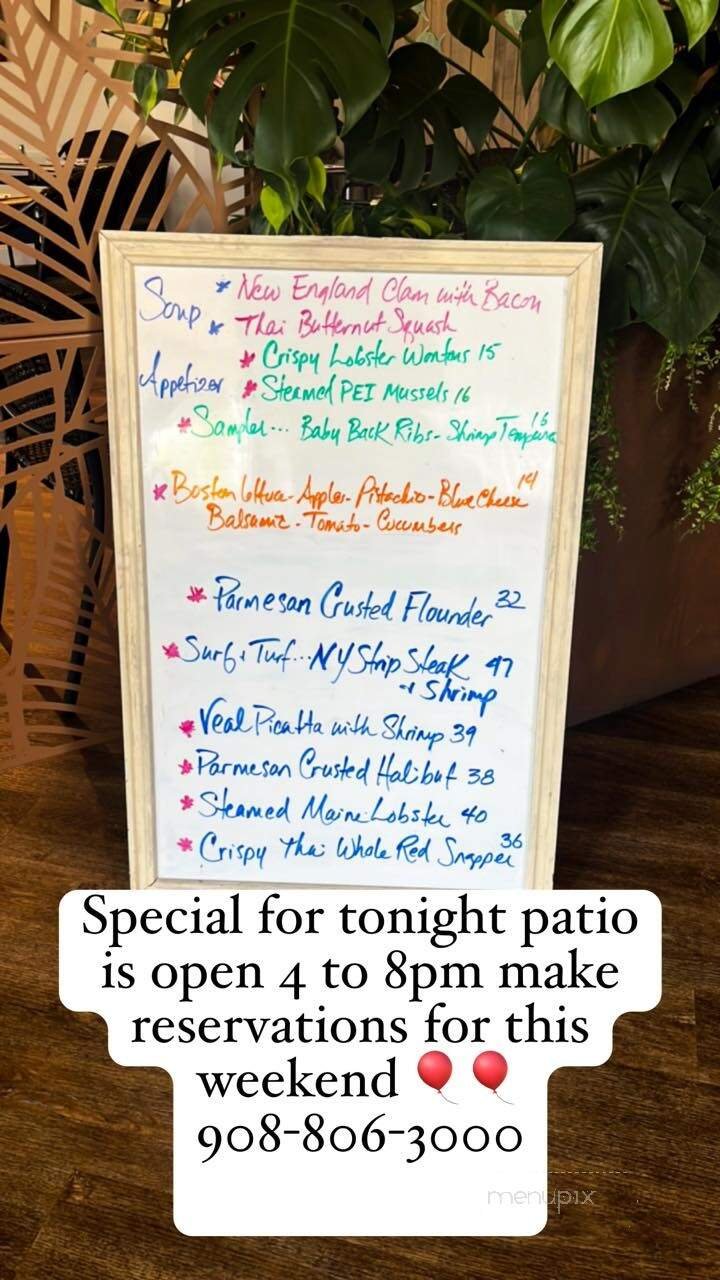 Soup * New England Clam with Bacon
* Thai Butternut Squash
* Crispy Lobster Wontons 15
Appetizer * Steamed PEI Mussels 16
* Sampler... Baby Back Ribs - Shrimp Tempura 16
* Boston Lettuce - Apples - Pistachio - Blue Cheese 14
Balsamic - Tomato - Cucumbers
* Parmesan Crusted Flounder 32
* Surf & Turf... NY Strip Steak 47
+ Shrimp
* Veal Picatta with Shrimp 39
* Parmesan Crusted Halibut 38
* Steamed Maine Lobster 40
* Crispy Thai Whole Red Snapper 36
Special for tonight patio
is open 4 to 8pm make
reservations for this
weekend 🎈🎈
908-806-3000
menupix